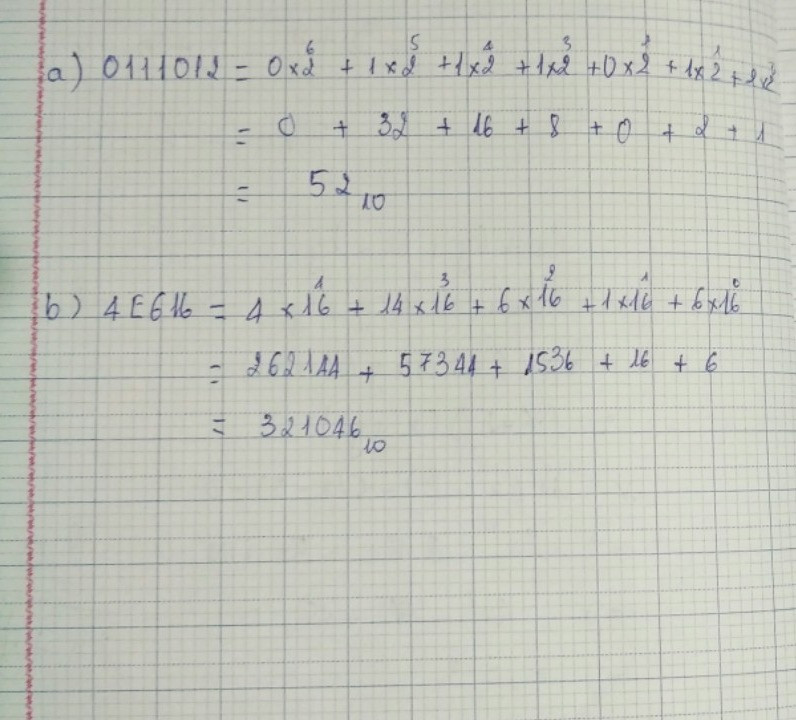 a) 0111012 = 0×2⁶ + 1×2⁵ + 1×2⁴ + 1×2³ + 0×2² + 1×2¹ + 2×2⁰
= 0 + 32 + 16 + 8 + 0 + 2 + 1
= 52₁₀
b) 4E616 = 4×16⁴ + 14×16³ + 6×16² + 1×16¹ + 6×16⁰
= 262144 + 57344 + 1536 + 16 + 6
= 321046₁₀